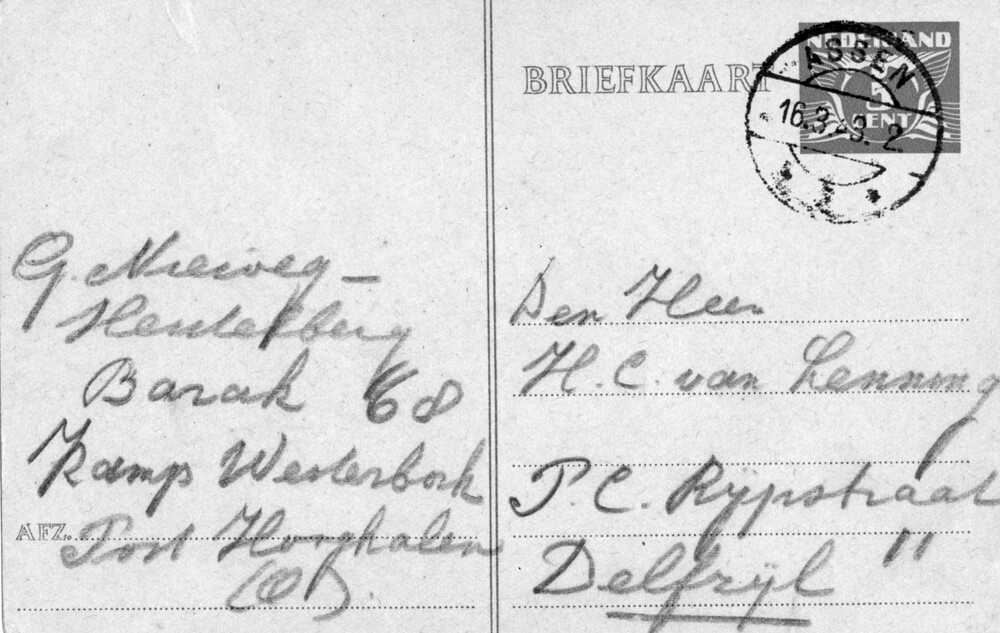 G. Nieweg-
Heidelberg
Barak 68
Kamp Westerbork
AFZ. Post Hooghalen
(O).
BRIEFKAART
NEDERLAND
5
CENT
ASSEN
16.3.43. 2
Den Heer
H. C. van
P. C. Rijpstraat
Delfzijl "